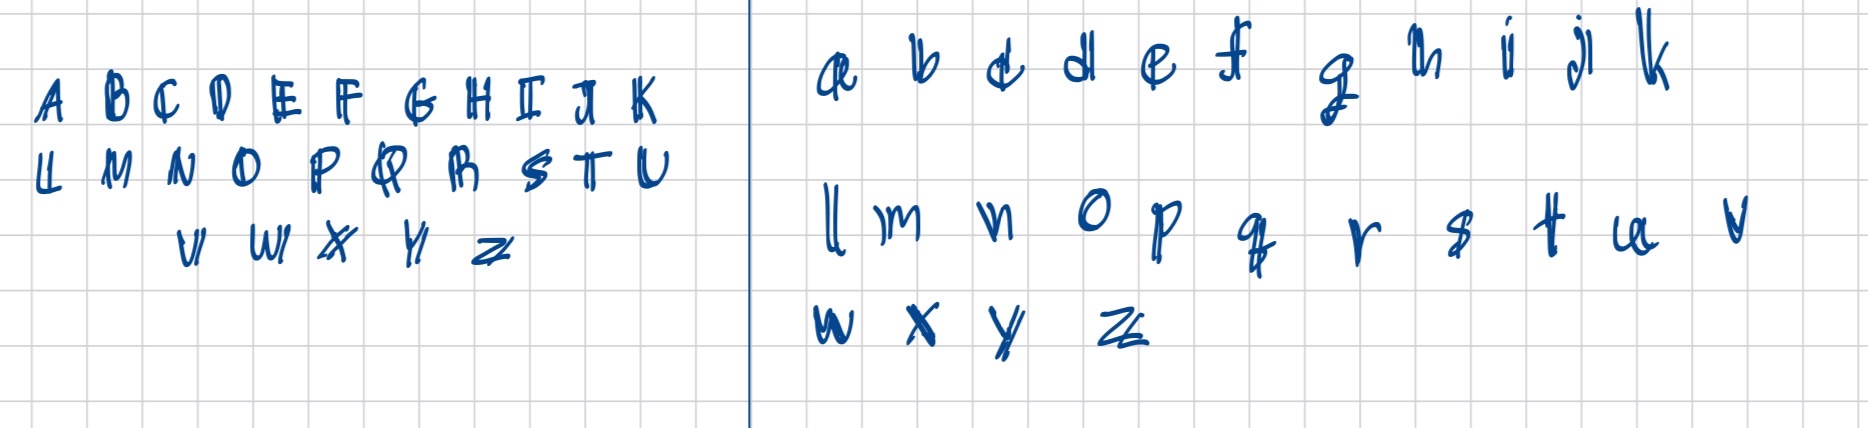 A B C D E F G H I J K
L M N O P Q R S T U
V W X Y Z
a b c d e f g h i j k
l m n o p q r s t u v
w x y z